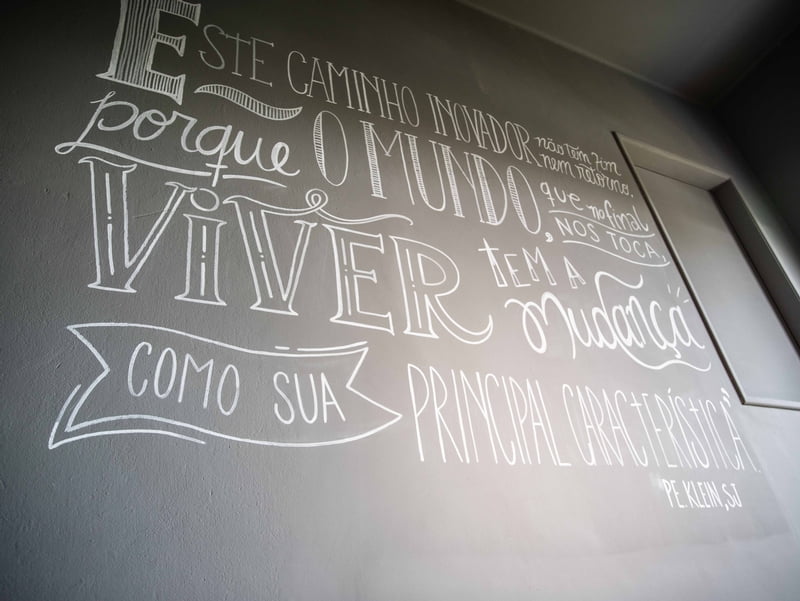 ESTE CAMINHO INOVADOR não têm fim
nem retorno.
porque O MUNDO, que no final
NOS TOCA,
VIVER tEM A
Mudança
COMO SUA PRINCIPAL CARACTERÍSTICA".
PE KLEIN, SJ